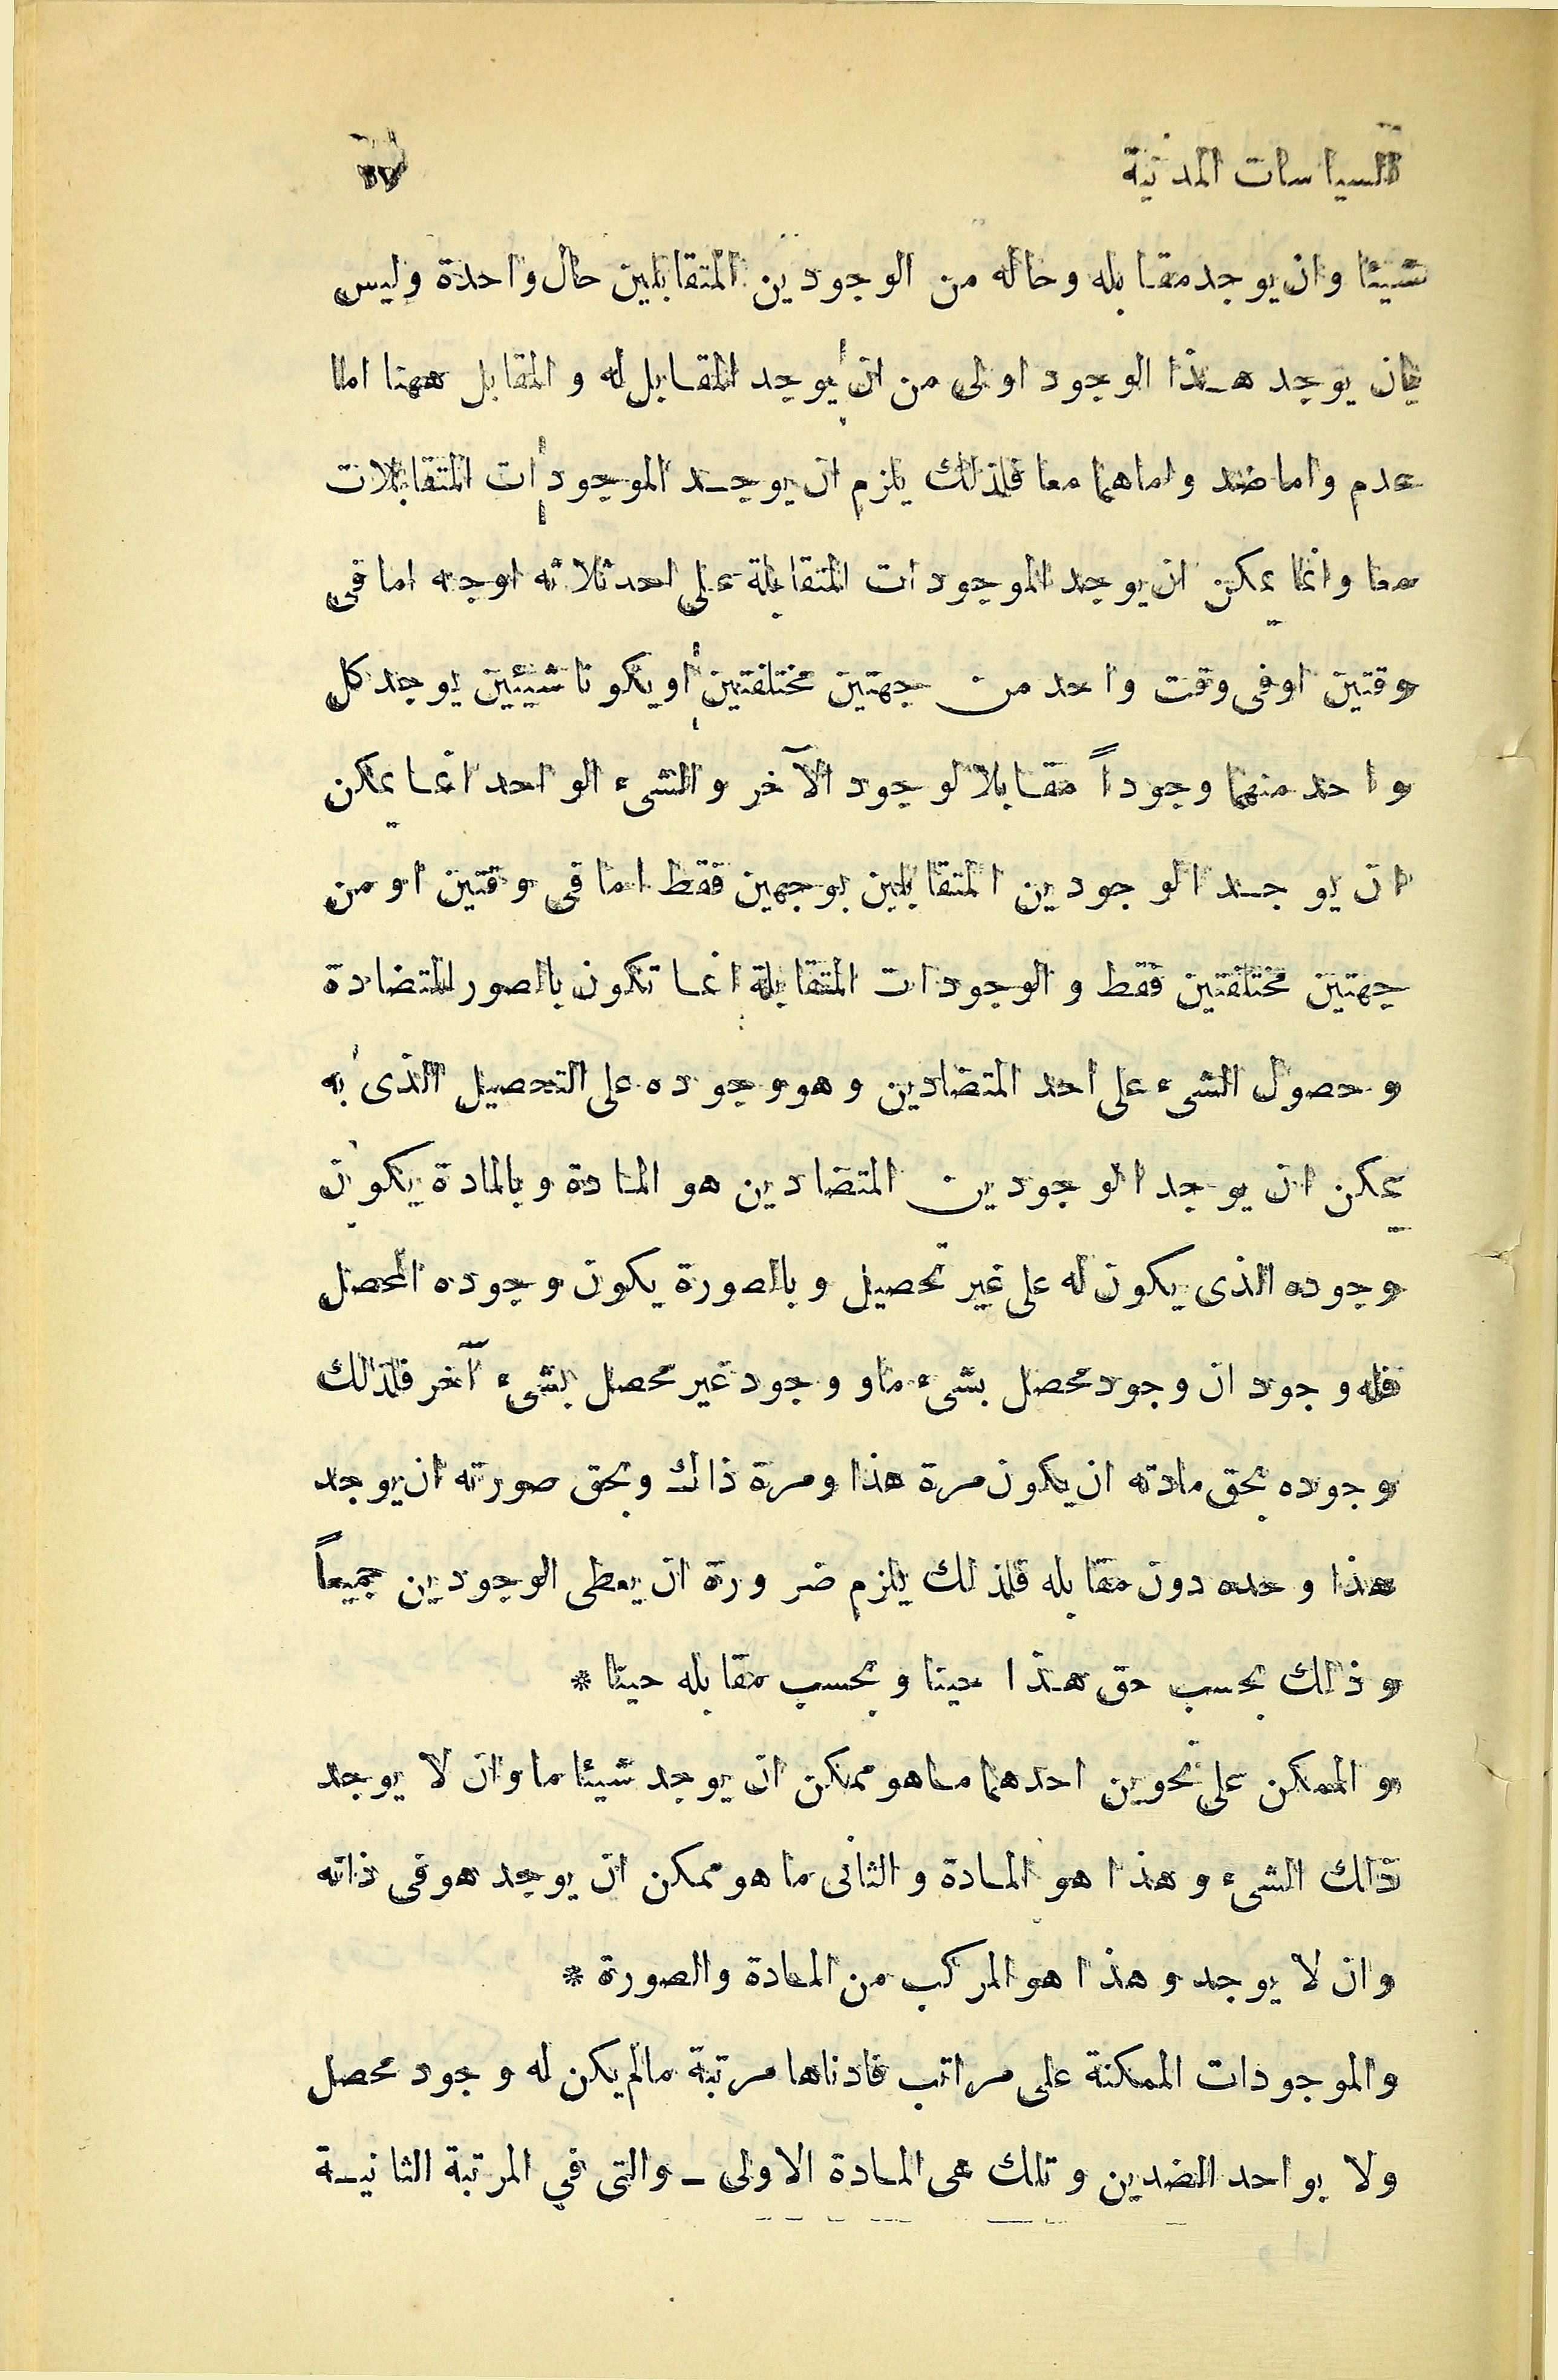 السياسات المدنية
شيئا وان يوجد مقابله وحاله من الوجودين المتقابلين حال واحدة وليس
بان يوجد هذا الوجود اولى من ان يوجد المقابل له والمقابل ههنا اما
عدم واما ضد واما هما معا فلذلك يلزم ان يوجد الموجودات المتقابلات
معا وانما يمكن ان يوجد الموجودات المتقابلة على احد ثلاثه اوجه اما فى
وقتين او فى وقت واحد من جهتين مختلفتين او يكونا شيئيين يوجد كل
واحد منهما وجوداً مقابلا لوجود الآخر والشىء الواحد انما يمكن
ان يوجد الوجودين المتقابلين بوجهين فقط اما فى وقتين او من
جهتين مختلفتين فقط والوجودات المتقابلة انما تكون بالصور المتضادة
وحصول الشىء على احد المتضادين وهو وجوده على التحصيل الذى به
يمكن ان يوجد الوجودين المتضادين هو المادة وبالمادة يكون
وجوده الذى يكون له على غير تحصيل وبالصورة يكون وجوده المحصل
فله وجودان وجود محصل بشىء ما ووجود غير محصل بشىء آخر فلذلك
وجوده بحق مادته ان يكون مرة هذا ومرة ذاك وبحق صورته ان يوجد
هذا وحده دون مقابله فلذلك يلزم ضرورة ان يعطى الوجودين جميعاً
وذلك بحسب حق هذا حينا وبحسب مقابله حينا *
والممكن على نحوين احدهما ما هو ممكن ان يوجد شيئا ما وان لا يوجد
ذلك الشىء وهذا هو المادة والثانى ما هو ممكن ان يوجد هو فى ذاته
وان لا يوجد وهذا هو المركب من المادة والصورة *
والموجودات الممكنة على مراتب فادناها مرتبة مالم يكن له وجود محصل
ولا بواحد الضدين وتلك هى المادة الاولى ـ والتى في المرتبة الثانية